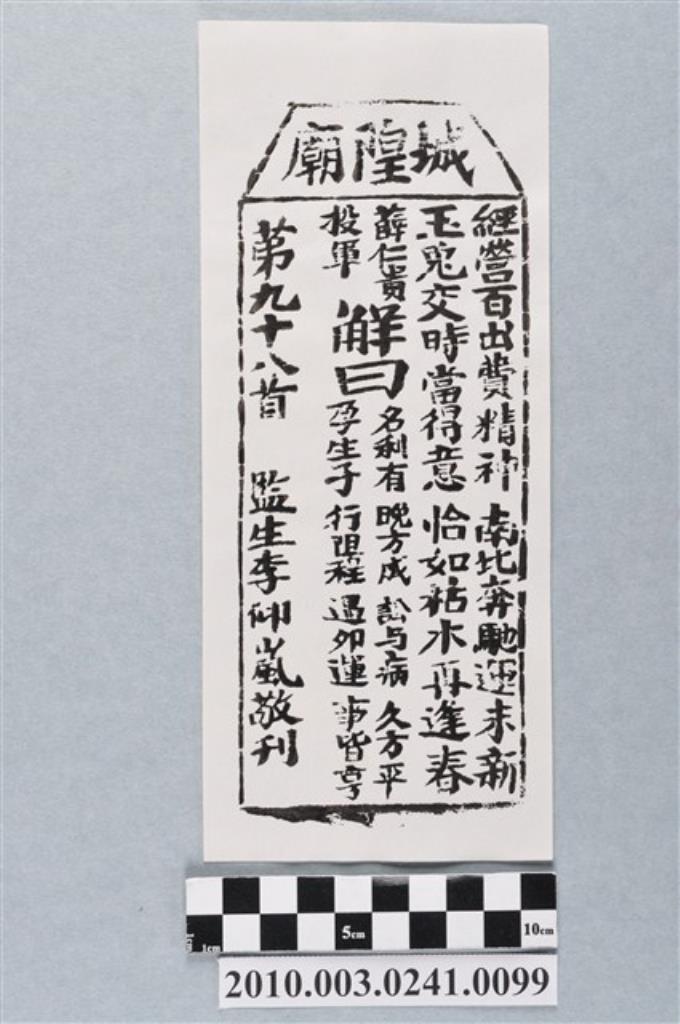 城隍廟
經營百出費精神 南北奔馳運未新
玉兎交時當得意 恰如枯木再逢春
薛仁貴投軍
解曰
名利有 晚方成 訟与病 久方平
孕生子 行阻程 遇卯運 事皆亨
第九十八首 監生李仰嵐敬刊
5cm
10cm
1cm
2010.003.0241.0099